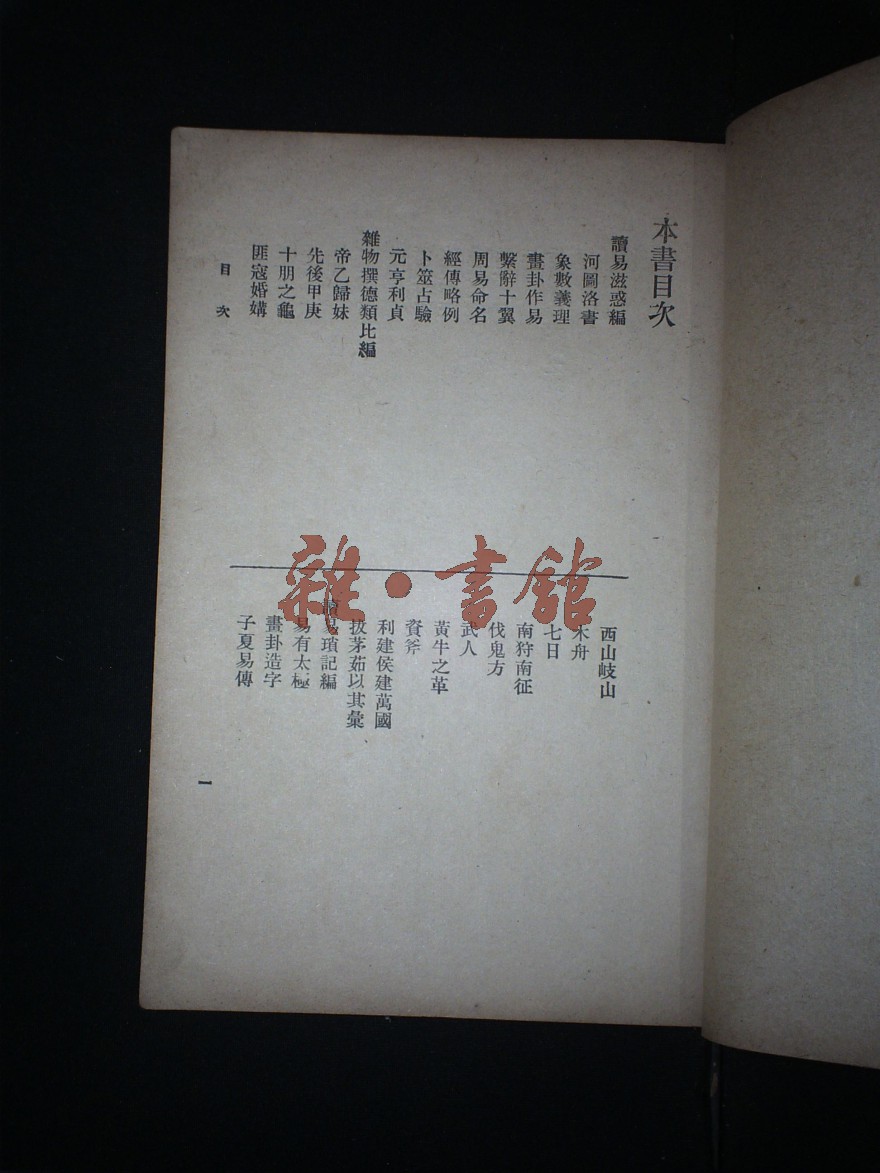 本書目次
讀易滋惑編
河圖洛書
象數義理
畫卦作易
繫辭十翼
周易命名
經傳略例
卜筮占驗
元亨利貞
雜物撰德類比編
帝乙歸妹
先後甲庚
十朋之龜
匪寇婚媾
西山岐山
木舟
七日
南狩南征
伐鬼方
武人
黃牛之革
資斧
利建侯建萬國
拔茅茹以其彙
讀易瑣記編
易有太極
畫卦造字
子夏易傳
目次
一
雜·書館